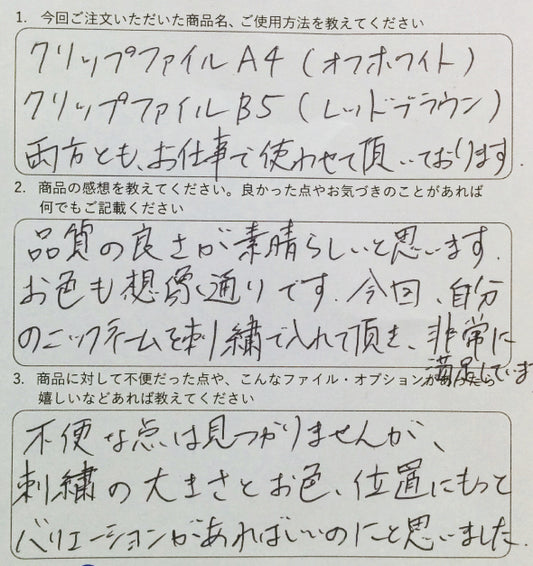 1. 今回ご注文いただいた商品名、ご使用方法を教えてください
クリップファイルA4(オフホワイト)
クリップファイルB5(レッドブラウン)
両方とも、お仕事で使わせて頂いております.
2. 商品の感想を教えてください。良かった点やお気づきのことがあれば
何でもご記載ください
品質の良さが素晴らしいと思います.
お色も想像通りです.今回、自分
のニックネームを刺繍で入れて頂き、非常に
満足しています
3. 商品に対して不便だった点や、こんなファイル・オプションがあったら
嬉しいなどあれば教えてください
不便な点は見つかりませんが、
刺繍の大きさとお色、位置にもっと
バリエーションがあればいいのにと思いました.